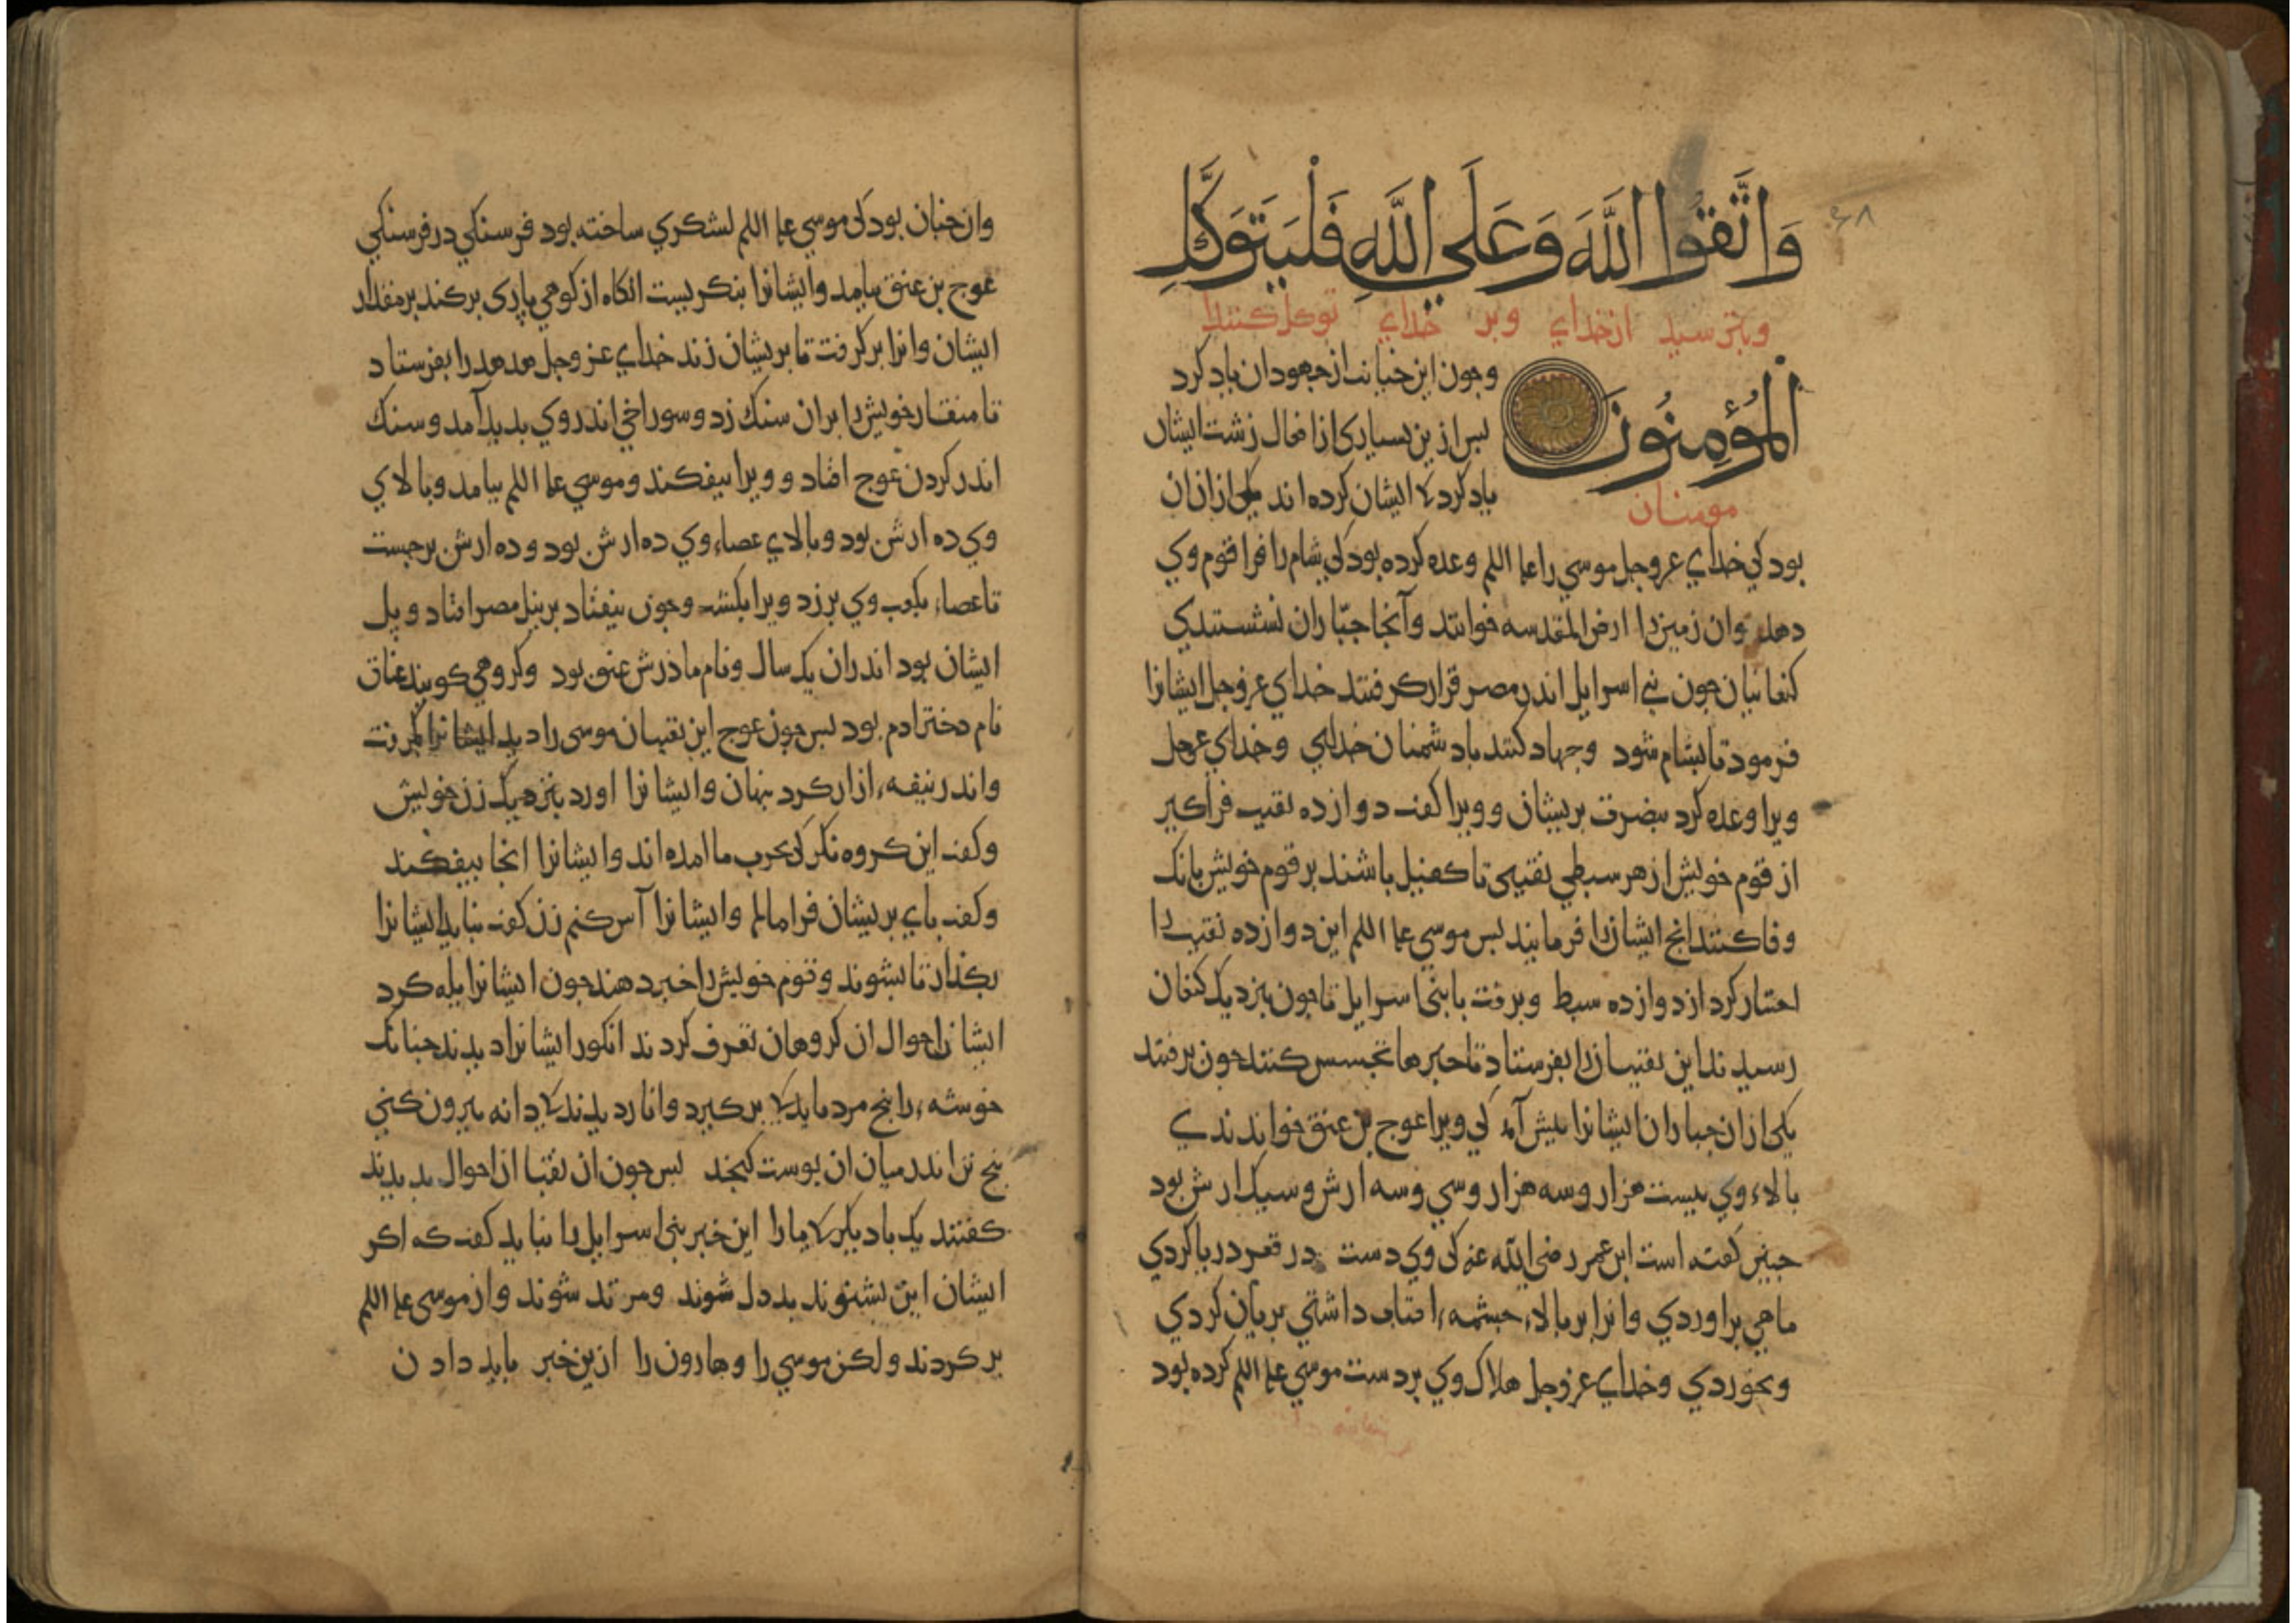 وَاتَّقُوا اللَّهَ وَعَلَي اللَّهِ فَلْيَتَوَكَّلِ
وبترسید ازخداي وبر خداي توکل کنندا
وجون این خیانت ازجهودان یاد کرد
الْمُؤْمِنُونَ
بس ازین بسیاری ازافعال زشت ایشان
مومنان
یاد کرد کایشان کرده اند یکی ازان ان
بود کي خداي عزوجل موسي را علم اللم وعده کرده بود کي شام را فرا قوم وي
دهد وان زمین را ارض المقدسه خوانند وآنجا جبّاران نشستندي
کنعانیان جون بني اسرایل اندر مصر قرار کرفتند خداي عزوجل ایشانرا
فرمود تا بشام شود وجهاد کنند بادشمنان خداي وخداي عزوجل
ویرا وعده کرد بنصرت بریشان وویرا کفت دوازده نقیب فراکیر
از قوم خویش از هر سبطي نقیبی تا کفیل باشند بر قوم خویش بانک
وفا کنند انج ایشانرا فرمایند بس موسي علم اللم این دوازده نقیب را
اختیار کرد از دوازده سبط وبرفت بابنی اسرایل تا جون بنزدیک کنعان
رسیدند این نقیبانرا بفرستاد تا خبرها تجسس کنند جون برفتند
یکی ازان جباران ایشانرا بیش آمد کي ویرا عوج بن عنق خواندندي
بالاء وي بیست هزار وسه هزار وسي وسه ارش وسیک ارش بود
جنین کفته است ابن عمر رضي الله عنه کی وي دست در قعر دریا کردي
ماهي براوردي وانرا بر بالاء جشمهء افتاب داشتي بریان کردي
وبخوردي وخداي عزوجل هلاک وي بر دست موسي علم اللم کرده بود
وان جنان بود کی موسي علم اللم لشکري ساخته بود فرسنکي در فرسنکي
عوج بن عنق بیامد وایشانرا بنکریست انکاه از کوهي پارۀ برکند بر مقدار
ایشان وانرا برکرفت تا بریشان زند خداي عز وجل هدهد را بفرستاد
تا منقار خویش را بران سنک زد وسوراخي اندر وي بدید آمد وسنک
اندر کردن عوج افتاد وویرا بیفکند وموسي علم اللم بیامد وبالاي
وي ده ارش بود وبالاي عصاء وي ده ارش بود وده ارش برجست
تا عصاء بکعب وي برزد ویرا بکشت وجون بیفتاد بر نیل مصر افتاد وپل
ایشان بود اندران یک سال ونام ماذرش عنق بود وکروهي کویند عناق
نام دختر ادم بود بس جون عوج این نقیبان موسی را دید ایشانرا بکرفت
واندر نیفهء ازار کرد بنهان وایشانرا اورد بنزدیک زن خویش
وکفت این کروه نکر کی بحرب ما امده اند وایشانرا انجا بیفکند
وکفت باي بریشان فرا مالم وایشانرا آس کنم زن کفت نباید ایشانرا
بکذار تا بشوند وقوم خویش را خبر دهند جون ایشانرا یله کرد
ایشانرا احوال ان کروهان تعرف کردند انکور ایشانرا دیدند جنانک
خوشهء را بنج مرد باید کا برکیرد وانار دیدند کا دانه بیرون کني
بنج تن اندر میان ان بوست کنجد بس جون ان نقبا از احوال بدیدند
کفتند یک بادیکر کا مارا این خبر بنی اسرایل را نباید کفت که اکر
ایشان این بشنوند بددل شوند ومرتد شوند واز موسی علم اللم
برکردند ولکن موسي را وهارون را ازین خبر باید دادن